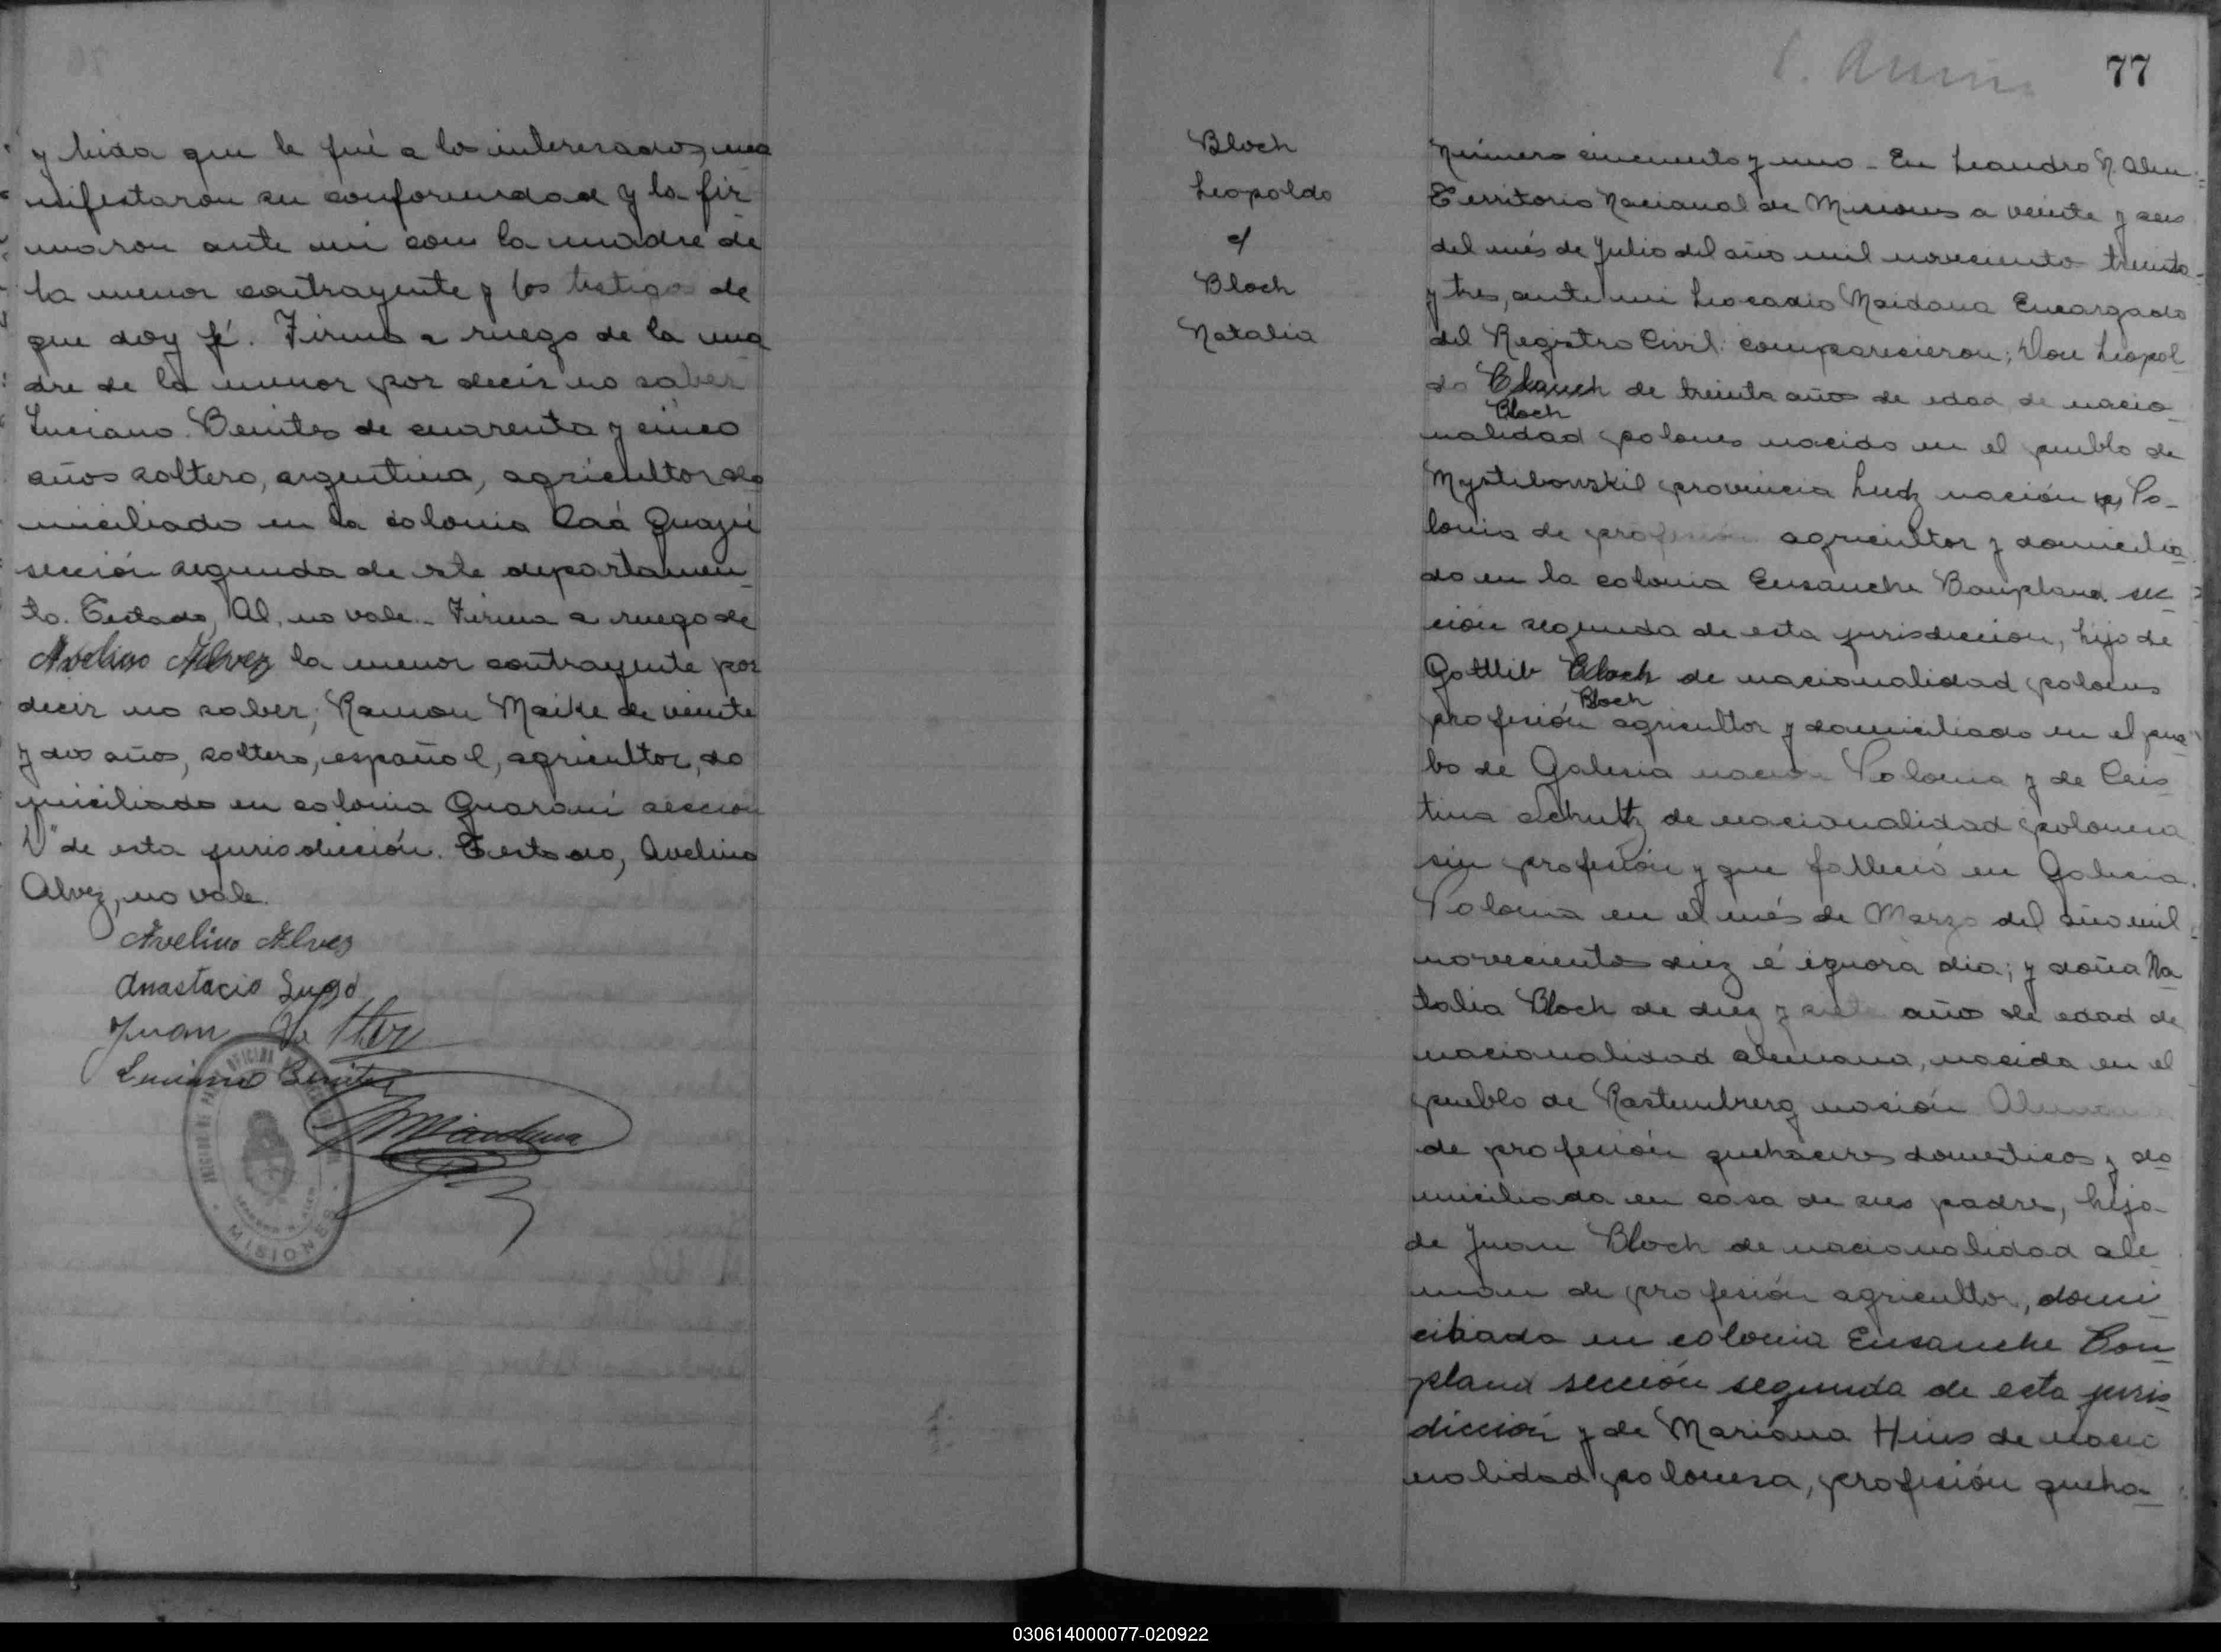 y leida que le fué a los interesados, ma
nifestaron su conformidad y la fir
maron ante mi com la madre de
la menor contrayente y los testigos de
que doy fé. Firma a ruego de la ma
dre de la menor por decir no saber
Luciano Benites de cuarenta y cinco
años soltero, argentino, agricultor do
miciliado en la colonia Caá Guazú
sección segunda de este departamen_
to. Testado, Al, no vale._ Firma a ruego de
Avelino Alvez la menor contrayente por
decir no saber; Ramon Maike de veinte
y dos años, soltero, español, agricultor, do
miciliado en colonia Guaraní seccion
V" de esta jurisdicción. Testado, Avelino
Alvez, no vale.
Avelino Alvez
Anastacio Lugo
Juan
Luciano Benitez
MISIONES
77
Bloch
Leopoldo
c/
Bloch
Natalia
Número cincuenta y uno - En Leandro N. Alem
Territorio Nacional de Misiones a veinte y seis
del més de Julio del año mil novecientos treinta
y tres, ante mi Leocadio Maidana Encargado
del Registro Civil: comparecieron; Don Leopol
do de treinta años de edad, de nacio
Bloch
nalidad polones nacido en el pueblo de
provincia Lutz nación Po_
lonia de profesión agricultor y domicilia
do en la colonia Ensanche Bonpland sec
ción segunda de esta jurisdiccion, hijo de
Gottlib de nacionalidad polones
Bloch
profesión agricultor y domiciliado en el pue
blo de Galesia nacion Polonia y de Cris
tina Schultz de nacionalidad polonesa
sin profesión y que falleció en Galicia
Polonia en el més de Marzo del año mil
novecientos diez é ignora dia; y doña Na
talia Bloch de diez y siete años de edad de
nacionalidad alemana, nacida en el
pueblo de Rastemberg nación Alemania
de profesión quehaceres domesticos y do
miciliada en casa de sus padres, hija
de Juan Bloch de nacionalidad ale
man de profesión agricultor, domi
ciliado en colonia Ensanche Bon
pland sección segunda de esta juris
dicción y de Mariana Hins de nacio
nalidad polonesa, profesión queha_
030614000077-020922